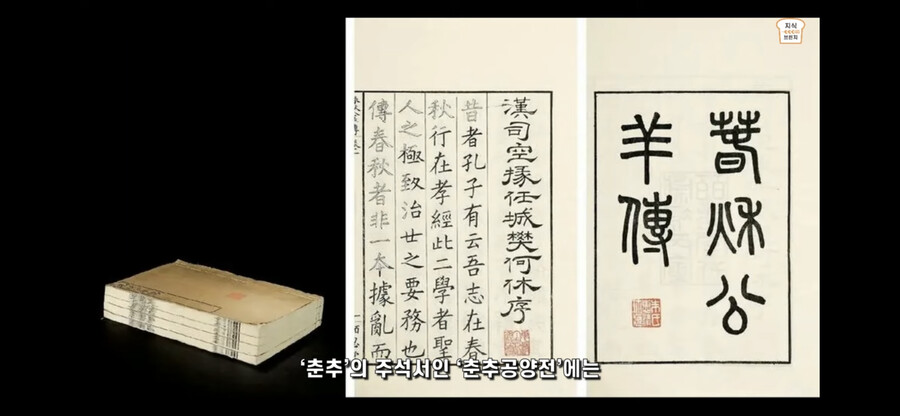 지식
브런치
春秋公
羊傳
漢司空掾任城樊何休序
昔者孔子有云吾志在春
秋行在孝經此二學者聖
人之極致治世之要務也
傳春秋者非一本據亂而
‘춘추’의 주석서인 ‘춘추공양전’에는